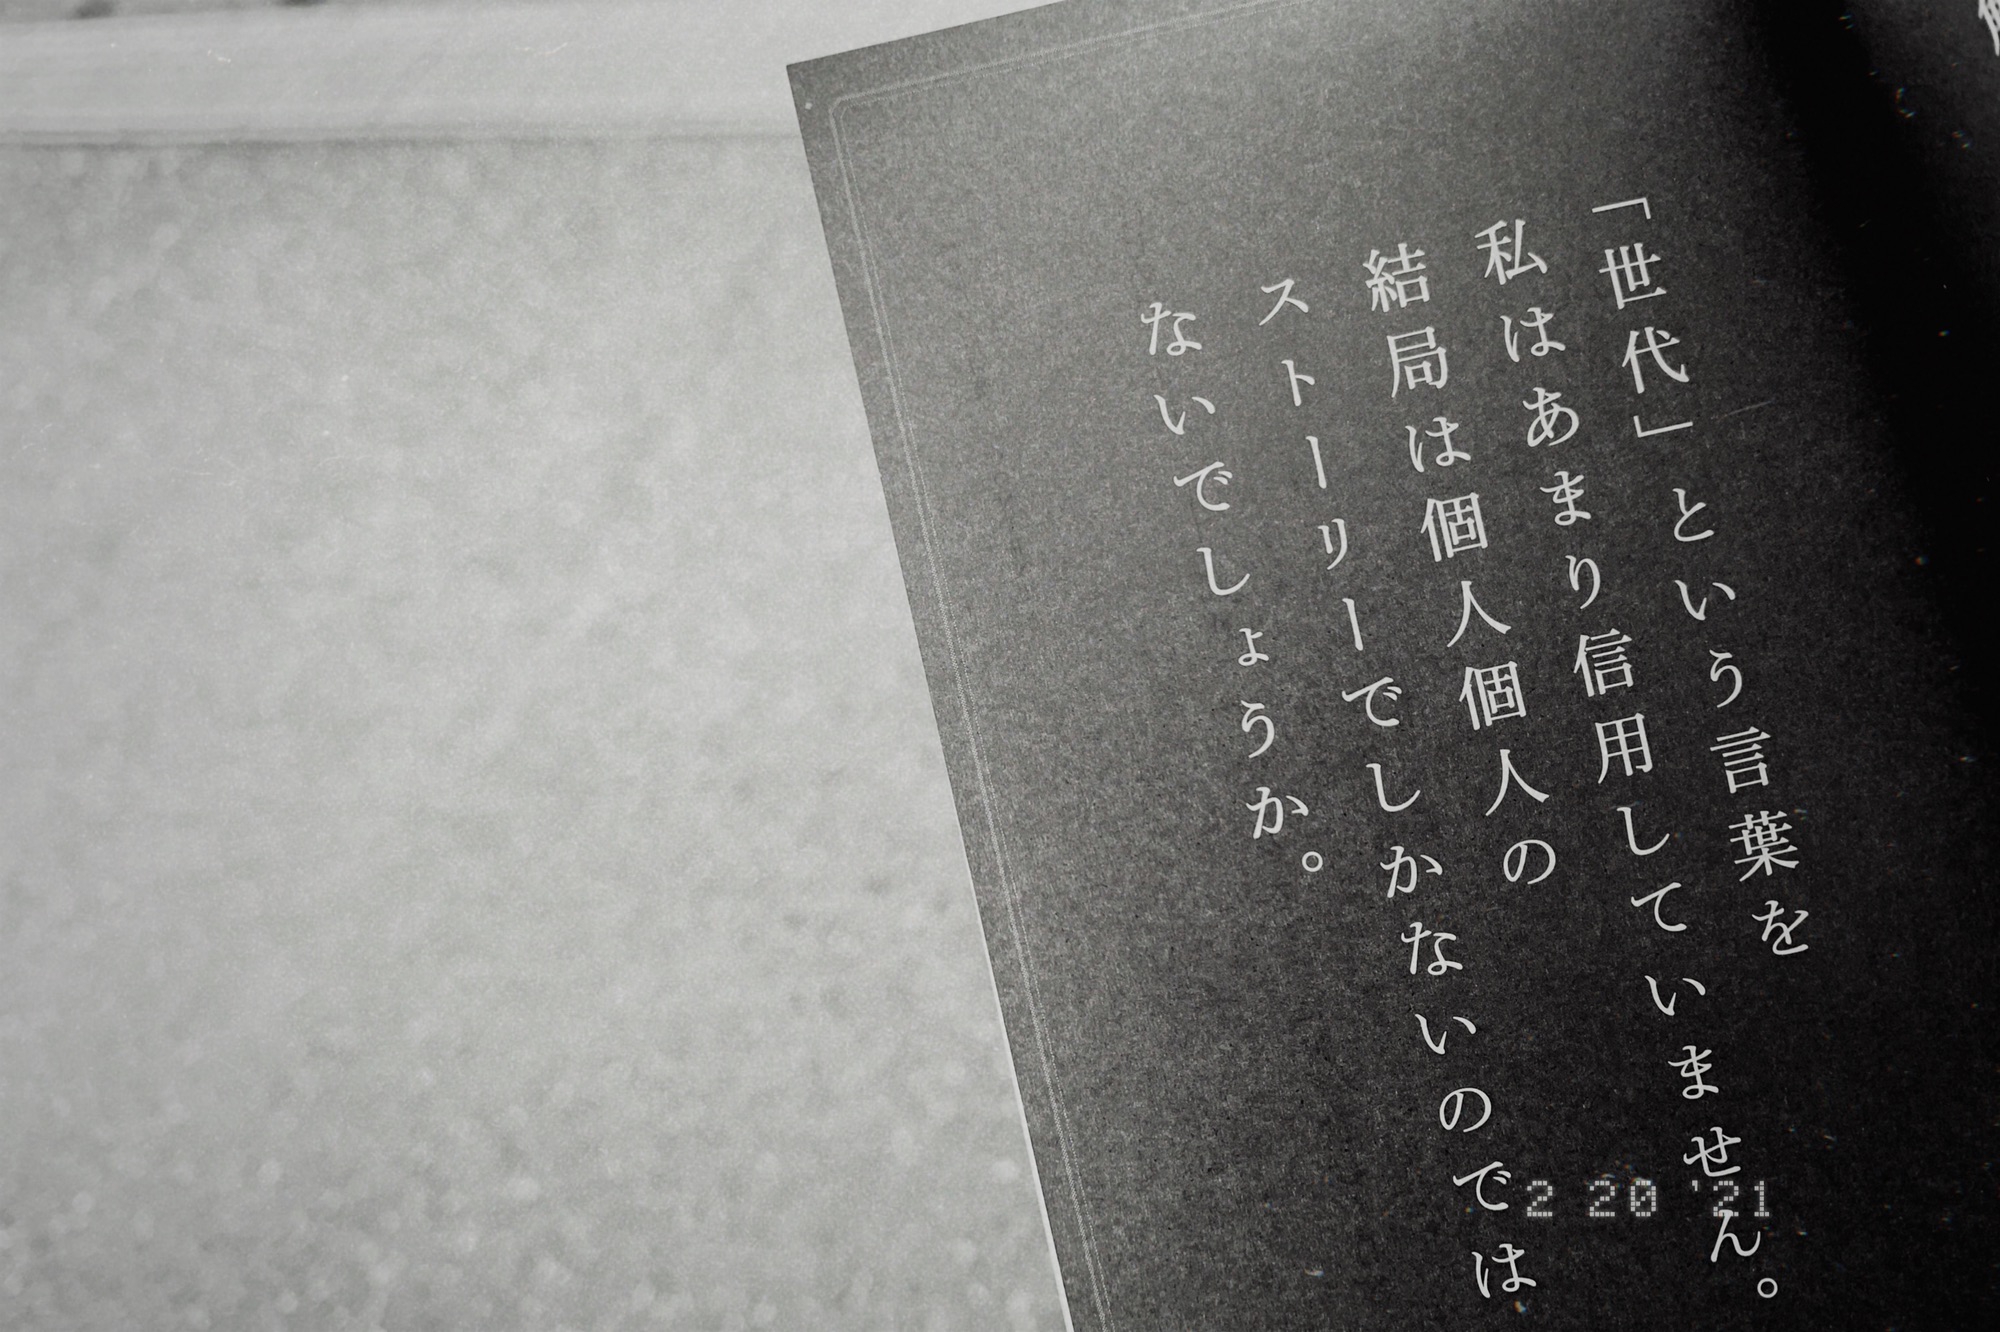 「世代」という言葉を
私はあまり信用していません。
結局は個人個人の
ストーリーでしかないのでは
ないでしょうか。
2 20 '21